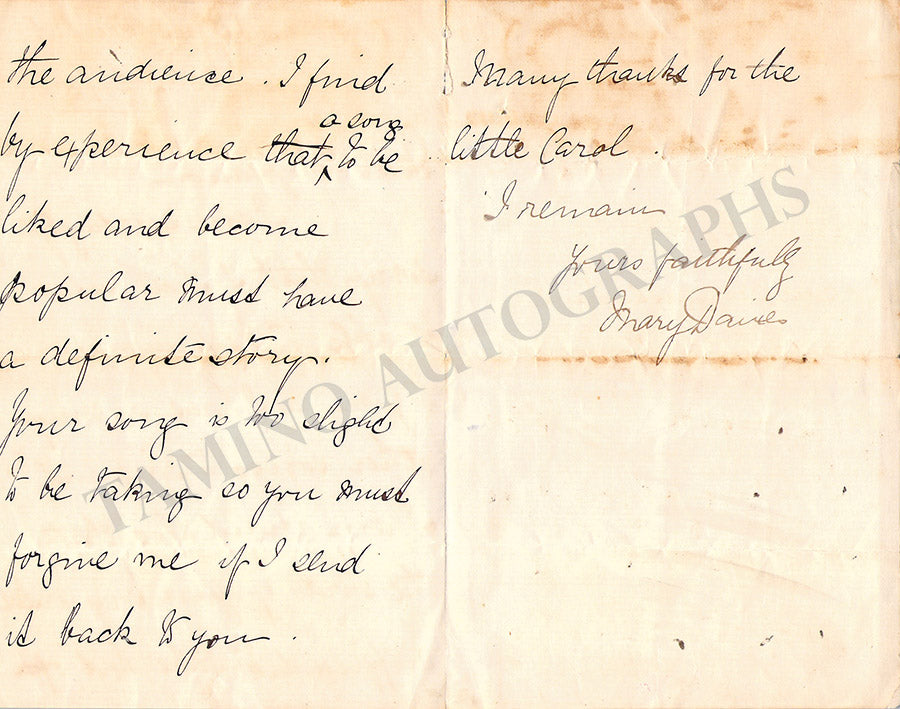 the audience. I find
a song
by experience that to be
liked and become
popular must have
a definite story.
Your song is too slight
to be taking so you must
forgive me if I send
it back to you.
Many thanks for the
little Carol.
I remain
Yours faithfully
Mary Davies
TAMINO AUTOGRAPHS